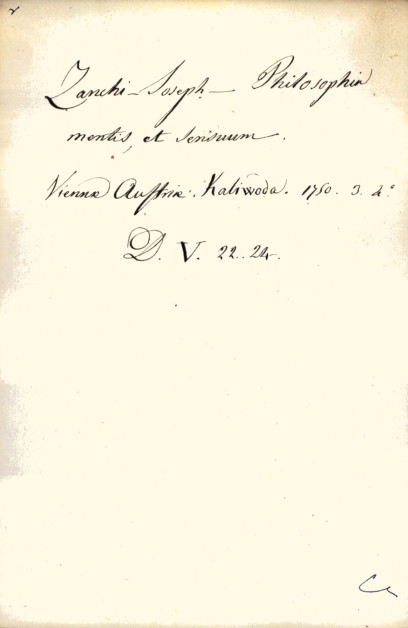 Zanchi - Joseph - Philosophia
mentis, et sensuum.
Viennæ Austriæ. Kaliwoda. 1750. 3. 4°
D. V. 22..24.